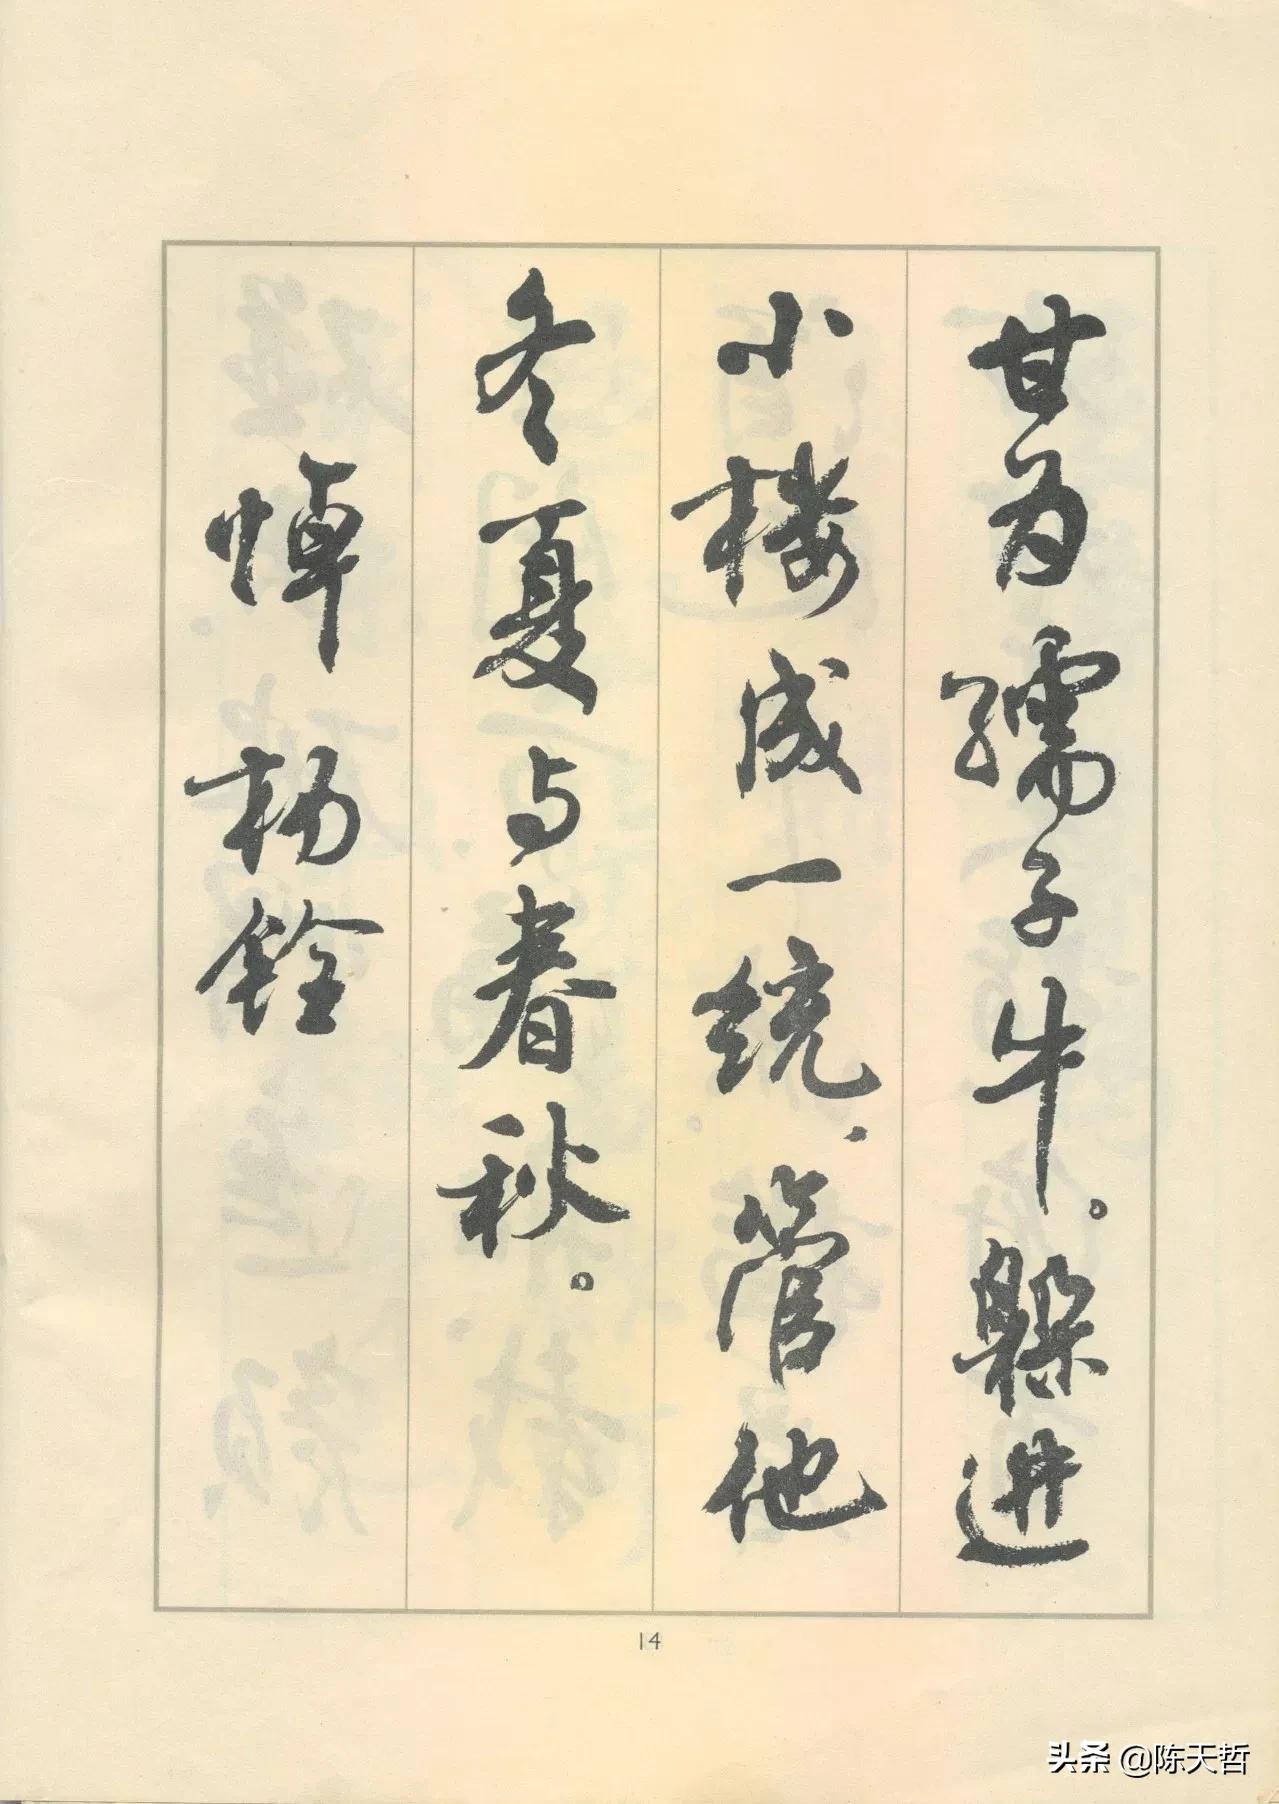 甘为孺子牛。躲进
小楼成一统，管他
冬夏与春秋。
悼杨铨
14
头条 @陈天哲